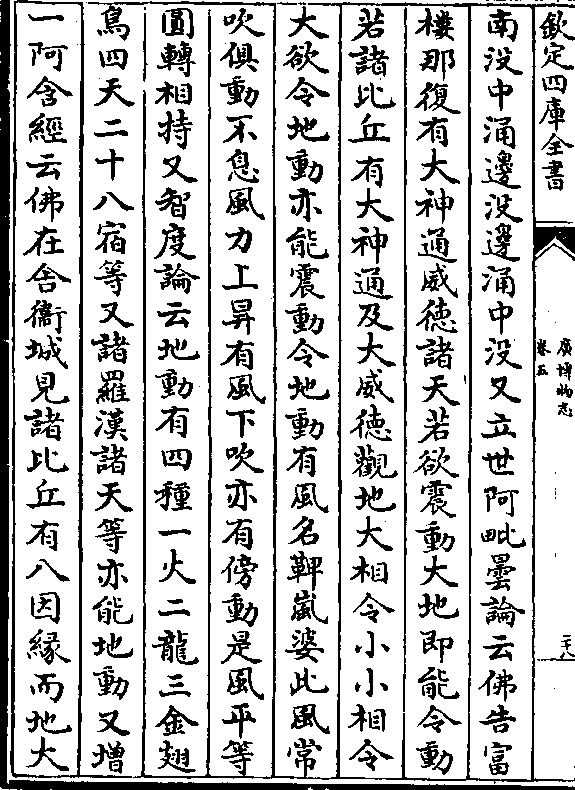 欽定四庫全書
廣博物志
卷五
二十八
南没中涌邊没邊涌中没又立世阿毗曇論云佛告富
樓那復有大神通威徳諸天若欲震動大地即能令動
若諸比丘有大神通及大威徳觀地大相令小小相令
大欲令地動亦能震動令地動有風名鞞嵐婆此風常
吹俱動不息風力上昇有風下吹亦有傍動是風平等
圓轉相持又智度論云地動有四種一火二龍三金翅
鳥四天二十八宿等又諸羅漢諸天等亦能地動又增
一阿含經云佛在舍衞城見諸比丘有八因緣而地大